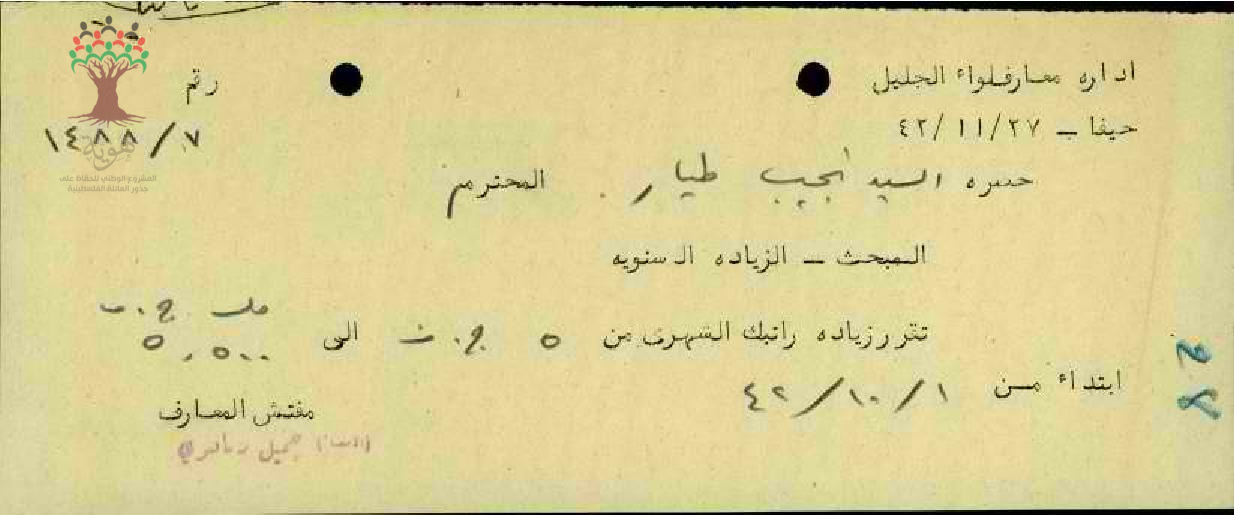 اداره معارف لواء الجليل
رقم
حيفا ــ ٤٢/١١/٢٧
١٤٨٨/٧
هوية
المشروع الوطني للحفاظ على
جذور العائلة الفلسطينية
حضره السيد نجيب طيار . المحترم
المبحث ــ الزياده السنويه
تقرر زياده راتبك الشهرى من ٥ ج.ف الى ٥,٥٠٠ ملـ ج.ف
ابتداء من ٤٢/١٠/١
مفتش المعارف
(امضاء) جميل